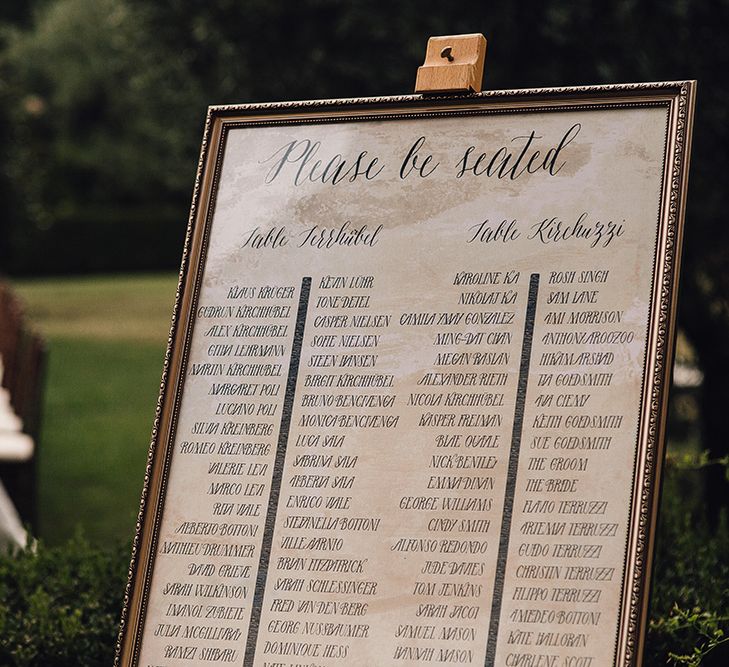 Please be seated
Table Terrhübel
Table Kirchuzzi
KLAUS KRÜGER
GUDRUN KIRCHHÜBEL
ALEX KIRCHHÜBEL
GITHA LEHRMANN
MARTIN KIRCHHÜBEL
MARGARET POLI
LUCIANO POLI
SILVIA KREINBERG
ROMEO KREINBERG
VALERIE LEVA
MARCO LEVA
RITA VIALE
ALBERTO BOTTONI
MATHIEU DRUMMER
DAVID GRIEVE
SARAH WILKINSON
IMANOL ZUBETE
JULIA MCGILLIVRAY
RAMZI SHBARU
KEVIN LÜHR
TONE DETEL
CASPER NIELSEN
SOFIE NIELSEN
STEEN HANSEN
BIRGIT KIRCHHÜBEL
BRUNO BENCIVENGA
MONICA BENCIVENGA
LUCA SAIA
SABRINA SAIA
ALBERTA SAIA
ENRICO VIALE
STEFANELLA BOTTONI
VILLE AARNIO
BRIAN FITZPATRICK
SARAH SCHLESSINGER
FRED VAN DEN BERG
GEORG NUSSBAUMER
DOMINIQUE HESS
KAROLINE KA
NIKOLAJ KA
CAMILA YMAY GONZALEZ
MING-DAT
MEGAN RASLAN
ALEXANDER RIETH
NICOLA KIRCHHÜBEL
KASPER FREIMAN
NICK BENTLEY
EMMA DIVAN
GEORGE WILLIAMS
CINDY SMITH
ALFONSO REDONDO
JUDE DAVIES
TOM JENKINS
SARAH JACOBI
SAMUEL MASON
VANESSA MASON
ROSH SINGH
SAM LANE
AMI MORRISON
ANTHONY AROOZOO
NIKVI MARSHAD
IVA GOLDSMITH
AVA
KEITH GOLDSMITH
SUE GOLDSMITH
THE GROOM
THE BRIDE
FLAVIO TERRUZZI
ARTEMIA TERRUZZI
GUIDO TERRUZZI
CHRISTIN TERRUZZI
FILIPPO TERRUZZI
AMEDEO BOTTONI
KATE HALLORAN
CHARLENE SCOTT